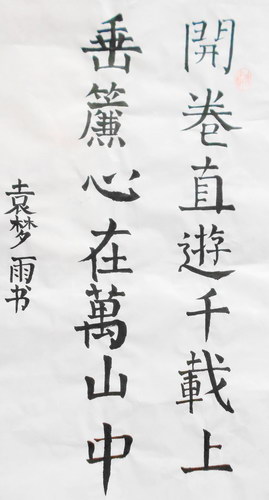 開卷直遊千載上
垂簾心在萬山中
袁梦雨书